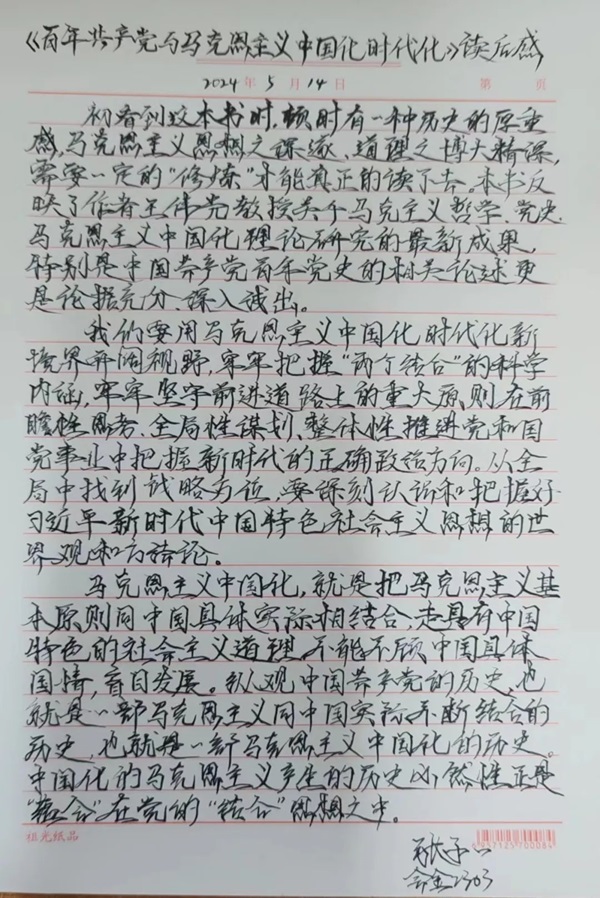 《百年共产党与马克思主义中国化时代化》读后感
2024年5月14日 第 页
初看到这本书时,顿时有一种历史的厚重
感,马克思主义思想之深邃、道理之博大精深,
需要一定的“修炼”才能真正的读了去。本书反
映了作者王伟光教授关于马克主义哲学、党史、
马克思主义中国化理论研究的最新成果,
特别是中国共产党百年党史的相关论述更
是论据充分、深入浅出。
我们要用马克思主义中国化时代化新
境界开阔视野,牢牢把握“两个结合”的科学
内涵,牢牢坚守前进道路上的重大原则在前
瞻性思考、全局性谋划、整体性推进党和国
党事业中把握新时代的正确政治方向。从全
局中找到战略方位,要深刻认识和把握好
习近平新时代中国特色社会主义思想的世
界观和方法论。
马克思主义中国化,就是把马克思主义基
本原则同中国具体实际相结合、走具有中国
特色的社会主义道理,不能不顾中国具体
国情,盲目发展。纵观中国共产党的历史,也
就是一部马克思主义同中国实际不断结合的
历史,也就是一部马克思主义中国化的历史。
中国化的马克思主义产生的历史必然性正是
在党的“结合”思想之中。
祖光纸品
6957125700084
会金2303